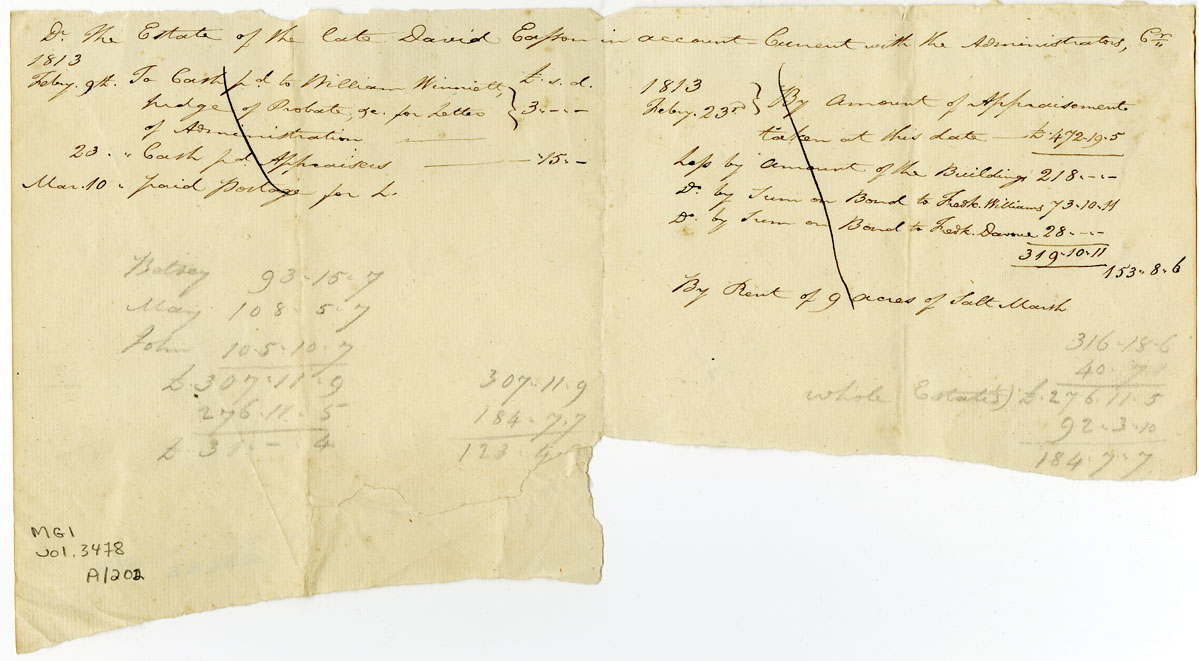 Dr. The Estate of the late David Easson in account-Current with the Administrators, Cr.
1813
Feby. 9th. To Cash pd. to William Winniett, £. s. d.
Judge of Probate, &c. for Letters } 3.-.-
of Administration
23. " Cash pd. Appraisers 15.-
Mar. 10 " paid Postage for L.
1813
Feby. 23rd } By Amount of Appraisement
taken at this date £472.19.5
Less by Amount of the Buildings 218.-.-
Do. by Sum on Bond to Fredk. Williams 73.10.11
Do. by Sum on Bond to Fredk. Davoue 28.-.-
319.10.11
153.8.6
By Rent of 9 acres of Salt Marsh
Betsey 93.15.7
May 108.5.7
John 105.10.7
£.307.11.9
276.11.5
£.31.-.4
307.11.9
184.7.7
123.4.
316.18.6
40.7.1
whole Estate(s) £.276.11.5
92.3.10
184.7.7
MG1
vol. 3478
A/202